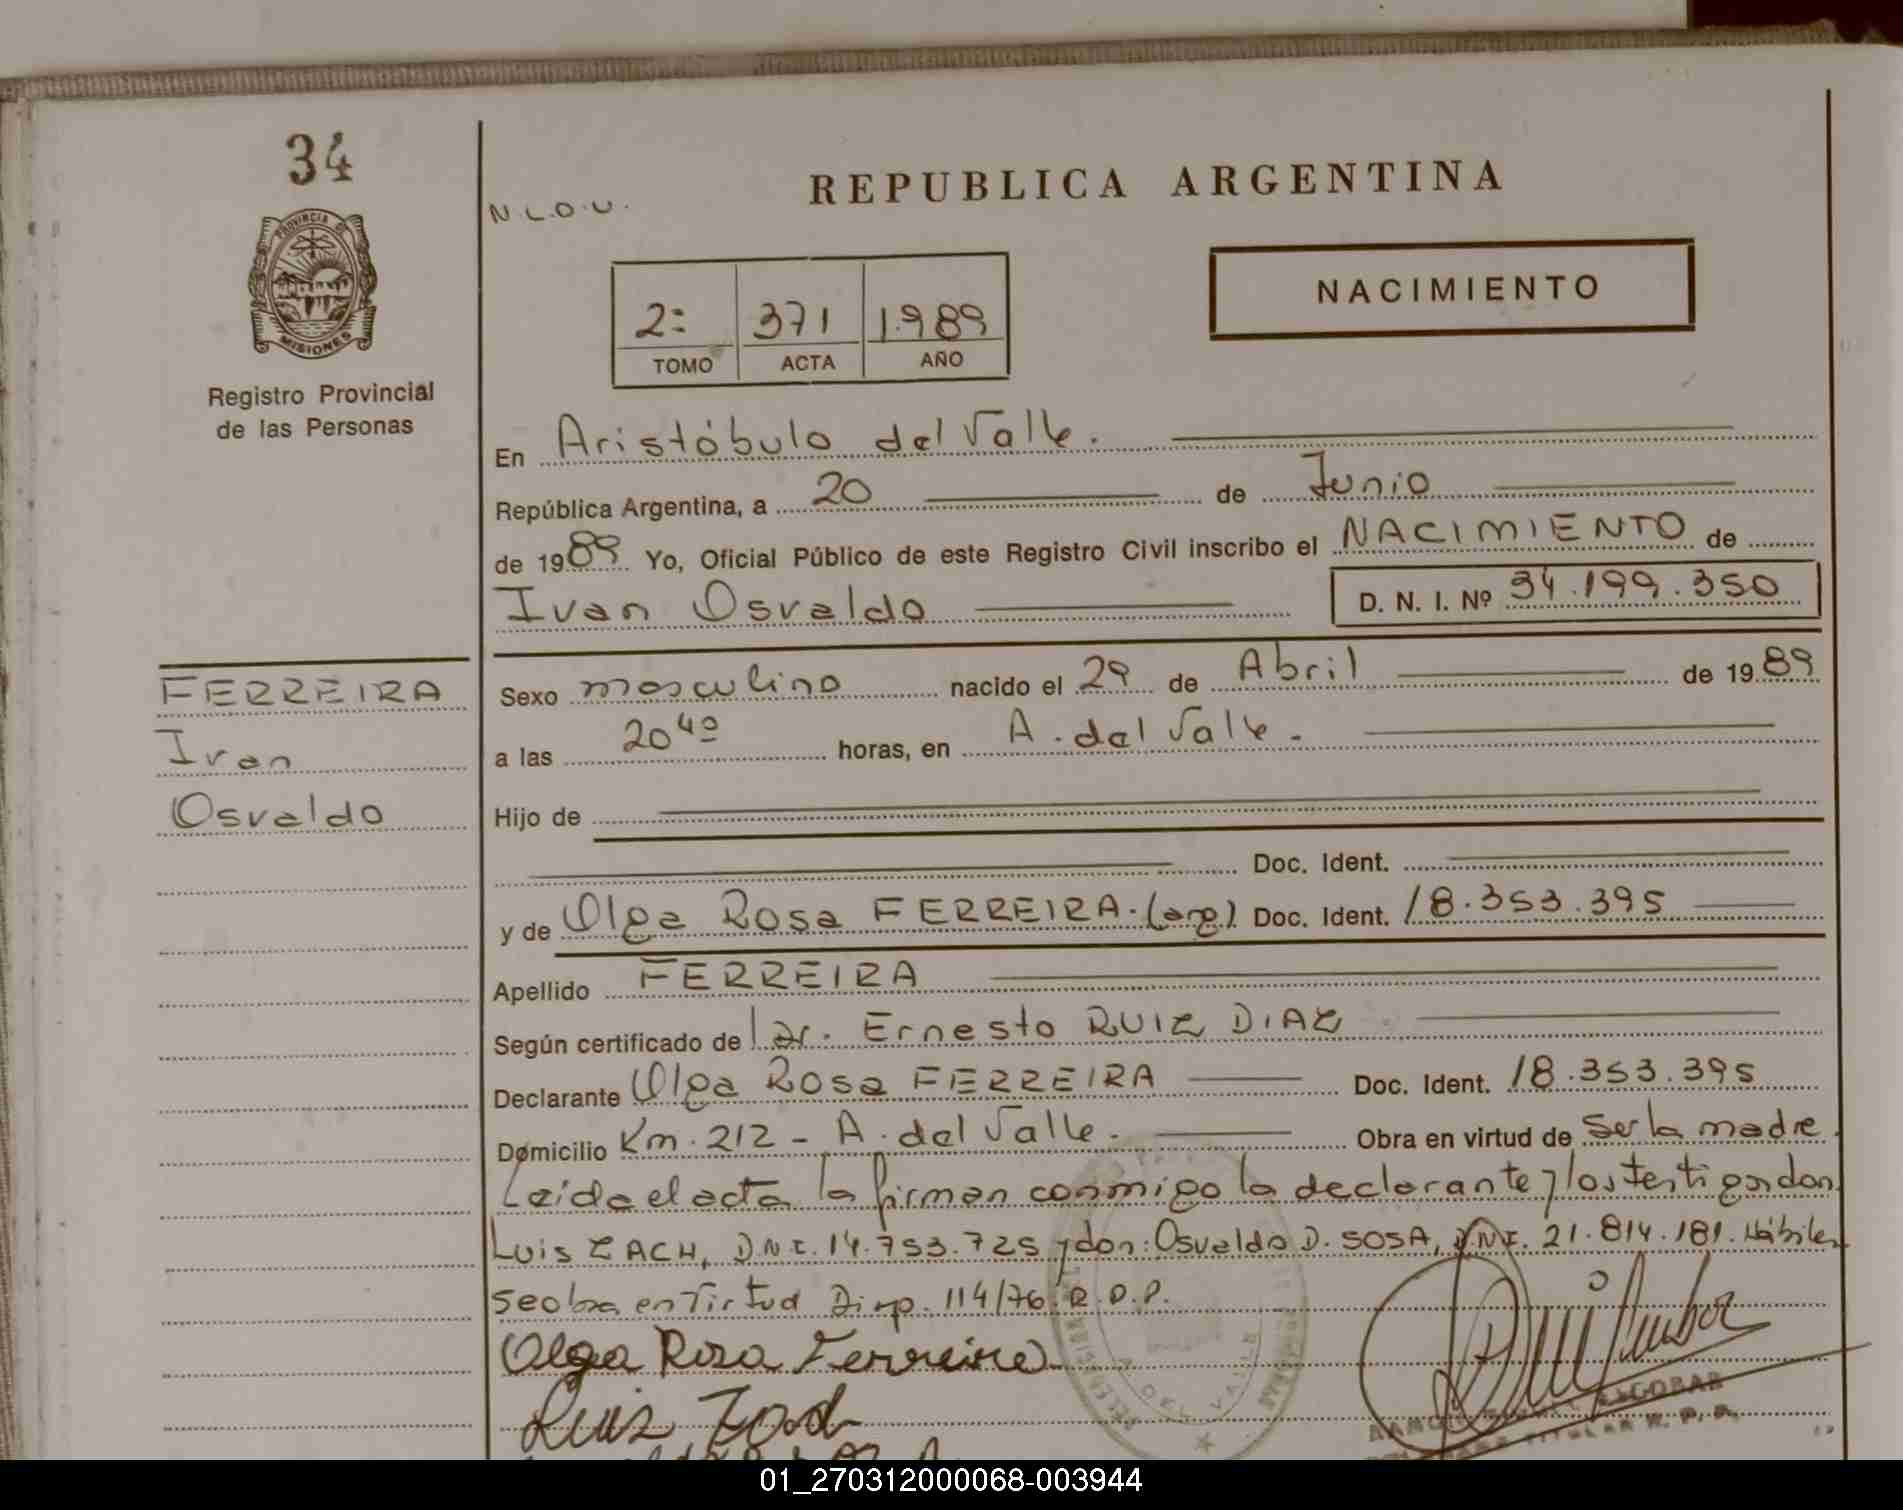 34
PROVINCIA DE
MISIONES
Registro Provincial
de las Personas
FERREIRA
Ivan
Osvaldo
N.L.O.U.
REPUBLICA ARGENTINA
2: 371 1.989
TOMO ACTA AÑO
NACIMIENTO
En Aristóbulo del Valle.
República Argentina, a 20 de Junio
de 1989 Yo, Oficial Público de este Registro Civil inscribo el NACIMIENTO de
Ivan Osvaldo D. N. I. Nº 34.199.350
Sexo masculino nacido el 29 de Abril de 1989
a las 20 40 horas, en A. del Valle.
Hijo de
Doc. Ident.
y de Olga Rosa FERREIRA.(arg) Doc. Ident. 18.353.395
Apellido FERREIRA
Según certificado de Dr. Ernesto RUIZ DIAZ
Declarante Olga Rosa FERREIRA Doc. Ident. 18.353.395
Domicilio Km. 212 - A. del Valle. Obra en virtud de ser la madre.
Leida el acta la firman conmigo la declarante y los testigos don
Luis ZACH, D.N.I. 14.753.725 y don: Osvaldo D. SOSA, D.N.I. 21.814.181. Hábiles
se obra en Virtud Disp. 114/76 R.P.P.
Olga Rosa Ferreira
Luis Zach
A. DEL VALLE
ESCOBAR
TITULAR R. P. P.
01_270312000068-003944